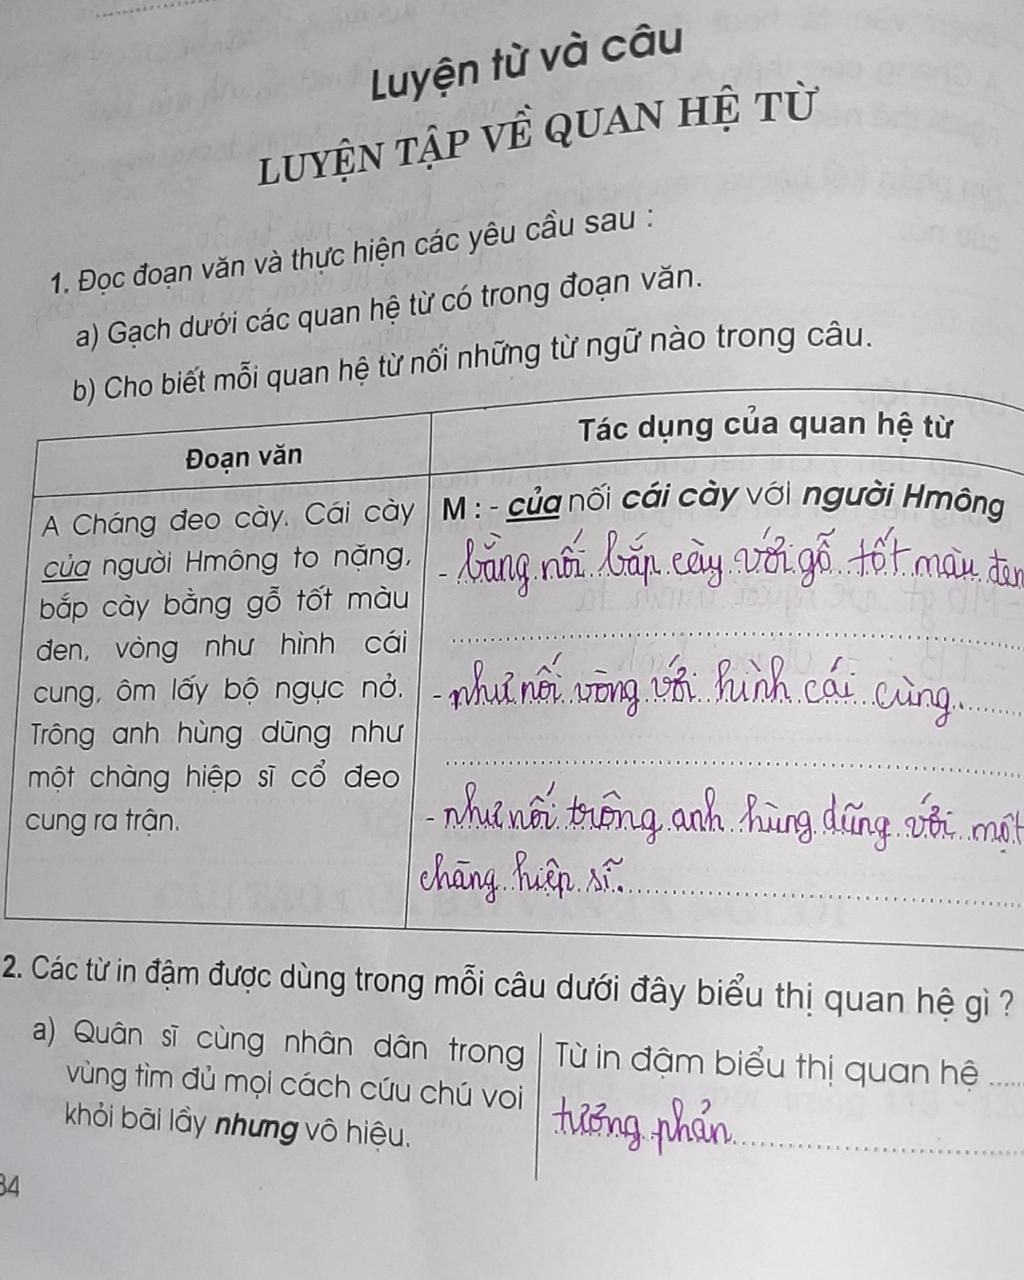 Luyện từ và câu
LUYỆN TẬP VỀ QUAN HỆ TỪ
1. Đọc đoạn văn và thực hiện các yêu cầu sau :
a) Gạch dưới các quan hệ từ có trong đoạn văn.
b) Cho biết mỗi quan hệ từ nối những từ ngữ nào trong câu.
Đoạn văn
A Cháng đeo cày. Cái cày
của người Hmông to nặng,
bắp cày bằng gỗ tốt màu
đen, vòng như hình cái
cung, ôm lấy bộ ngực nở.
Trông anh hùng dũng như
một chàng hiệp sĩ cổ đeo
cung ra trận.
Tác dụng của quan hệ từ
M : - của nối cái cày với người Hmông
- bằng nối bắp cày với gỗ tốt màu đen
- như nối vòng với hình cái cùng.
- như nối trông anh hùng dũng với một
chàng hiệp sĩ.
2. Các từ in đậm được dùng trong mỗi câu dưới đây biểu thị quan hệ gì ?
a) Quân sĩ cùng nhân dân trong
vùng tìm đủ mọi cách cứu chú voi
khỏi bãi lầy nhưng vô hiệu.
Từ in đậm biểu thị quan hệ .....
tương phản
84